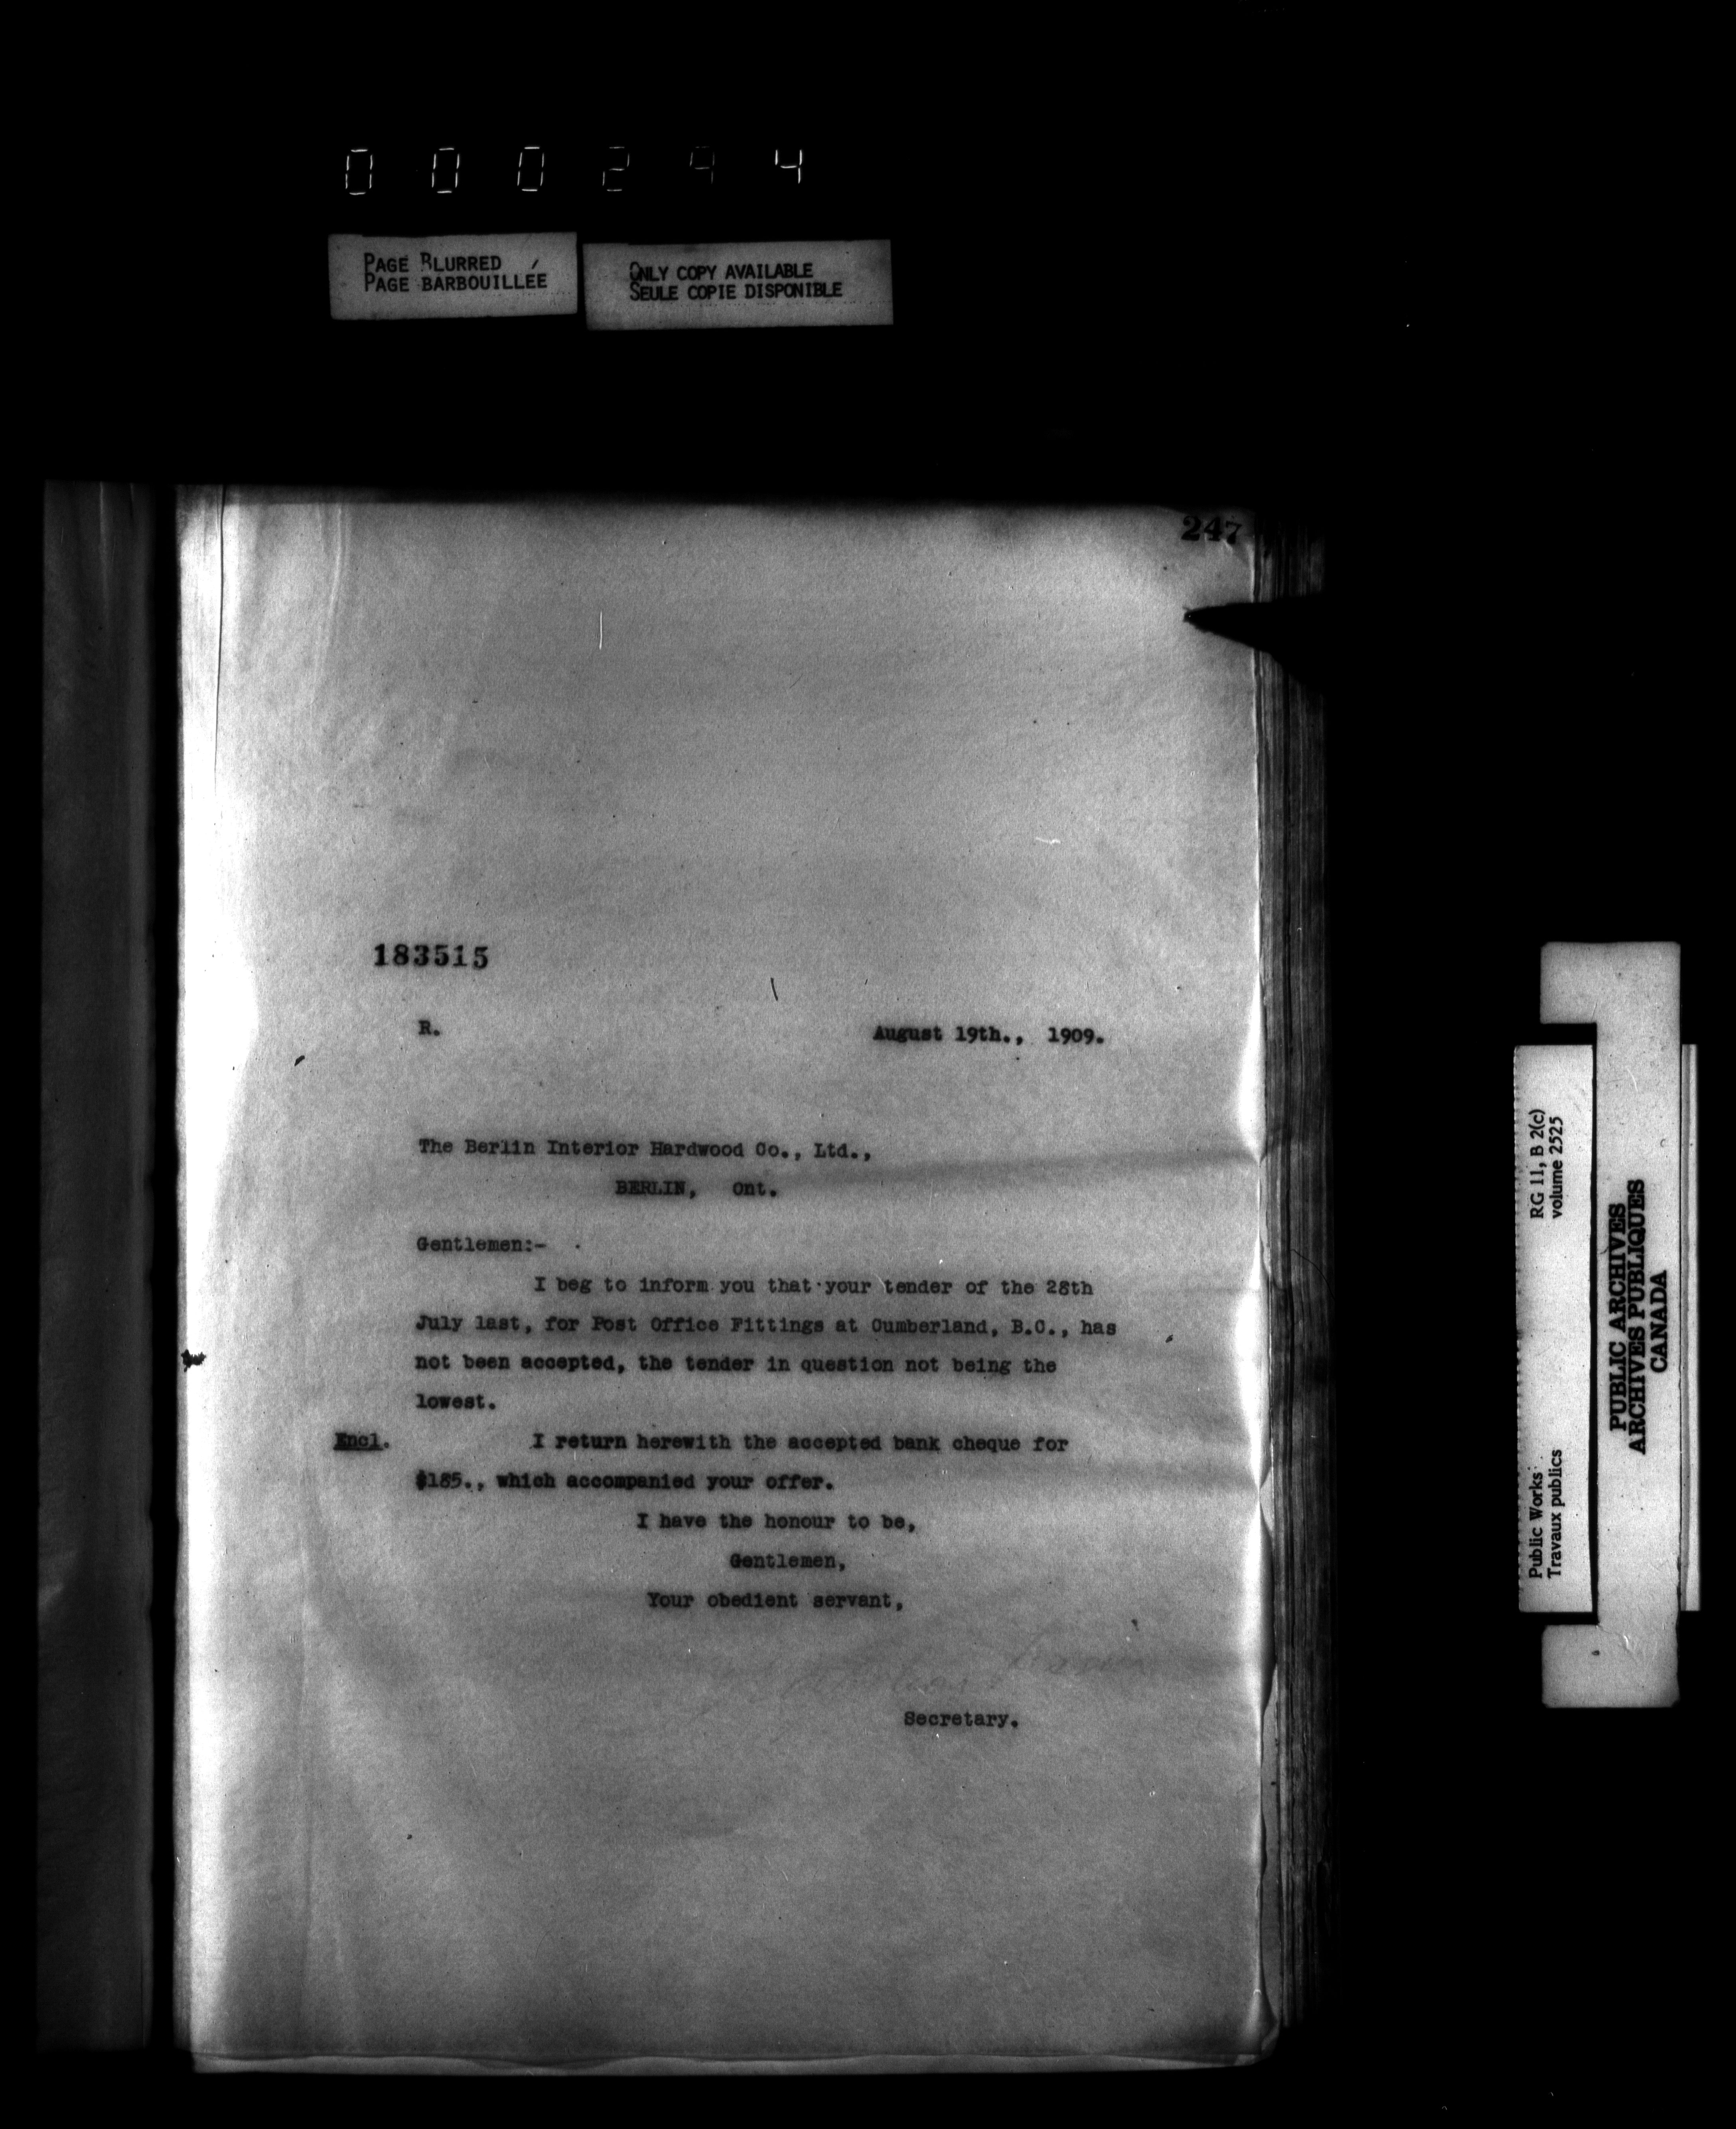 000294
PAGE BLURRED
PAGE BARBOUILLÉE
ONLY COPY AVAILABLE
SEULE COPIE DISPONIBLE
247
183515
R. August 19th., 1909.
The Berlin Interior Hardwood Co., Ltd.,
BERLIN, Ont.
Gentlemen:-
I beg to inform you that your tender of the 28th
July last, for Post Office Fittings at Cumberland, B.C., has
not been accepted, the tender in question not being the
lowest.
Encl. I return herewith the accepted bank cheque for
$185., which accompanied your offer.
I have the honour to be,
Gentlemen,
Your obedient servant,
Secretary.
Public Works RG 11, B 2(c)
Travaux publics volume 2525
PUBLIC ARCHIVES
ARCHIVES PUBLIQUES
CANADA